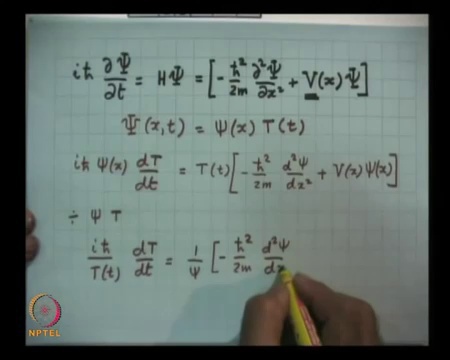 iħ ∂Ψ/∂t = HΨ = [-ħ²/2m ∂²Ψ/∂x² + V(x)Ψ]
Ψ(x,t) = ψ(x) T(t)
iħ ψ(x) dT/dt = T(t)[-ħ²/2m d²ψ/dx² + V(x)ψ(x)]
÷ ψ T
iħ/T(t) dT/dt = 1/ψ [-ħ²/2m d²ψ/dx
NPTEL